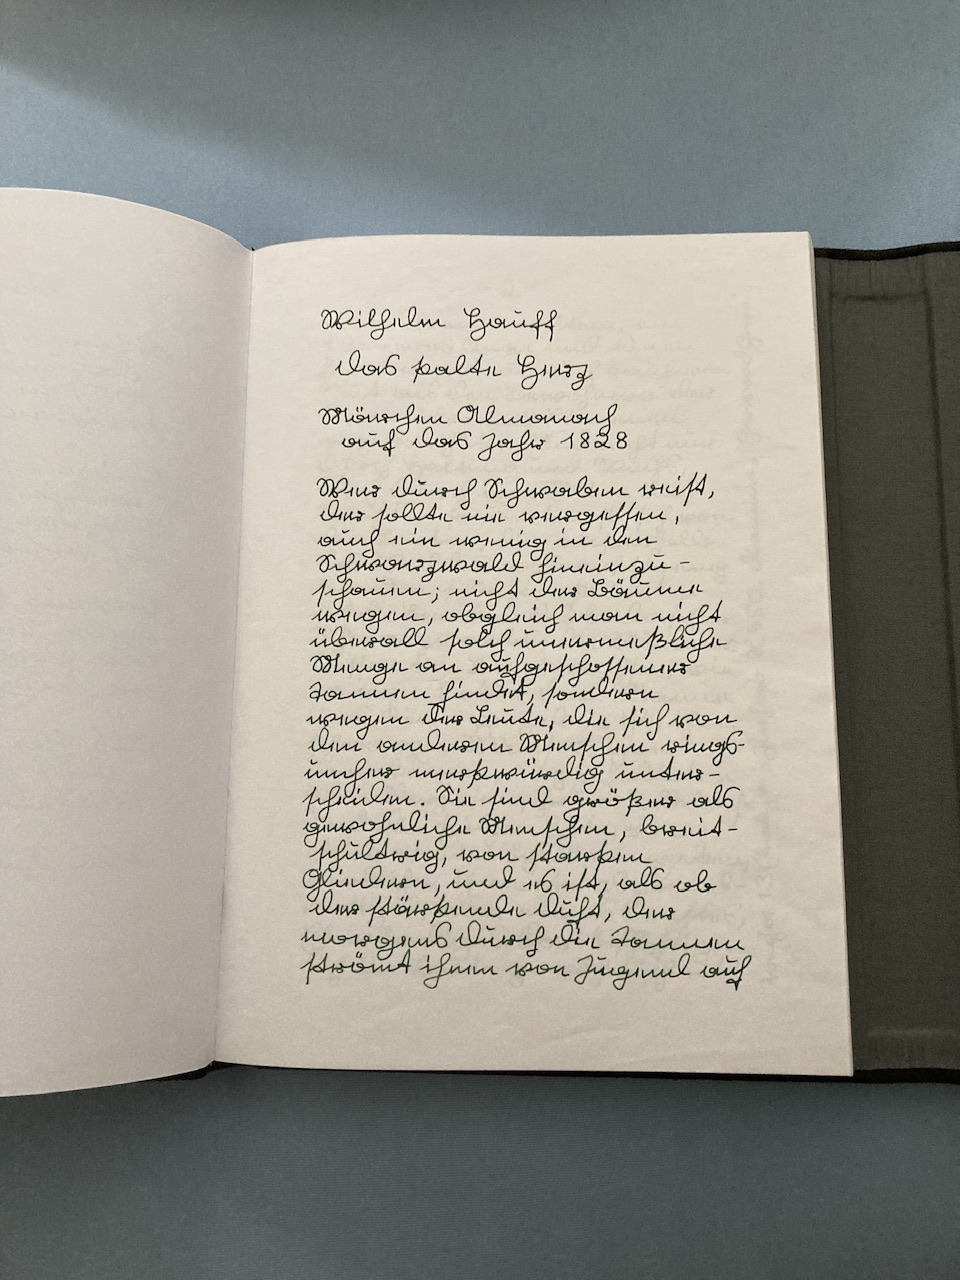 Wilhelm Hauff
das kalte Herz
Märchen Almanach
auf das Jahr 1828
Wer durch Schwaben reist,
der sollte nie vergessen,
auch ein wenig in den
Schwarzwald hineinzu-
schauen; nicht der Bäume
wegen, obgleich man nicht
überall solch unermeßliche
Menge an aufgeschossener
Tannen findet, sondern
wegen der Leute, die sich von
den anderen Menschen rings-
umher merkwürdig unter-
scheiden. Sie sind größer als
gewöhnliche Menschen, breit-
schultrig, von starken
Gliedern, und es ist, als ob
der stärkende Duft, der
morgens durch die Tannen
strömt ihnen von Jugend auf